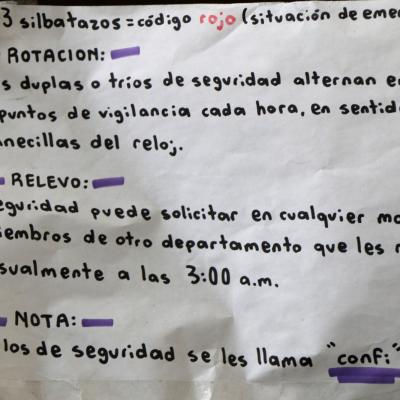 3 silbatazos = código rojo (situación de eme
ROTACION:
s duplas o tríos de seguridad alternan e
puntos de vigilancia cada hora, en sentid
necillas del reloj.
RELEVO:
eguridad puede solicitar en cualquier mo
iembros de otro departamento que les r
sualmente a las 3:00 a.m.
NOTA:
los de seguridad se les llama "confi"